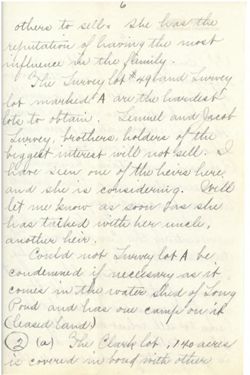 6
others to sell. She has the
reputation of having the most
influence in the family.
The Survey lot #49 and Survey
lot marked A are the hardest
lots to obtain. Lemuel and Jacob
Survey, brothers, holders of the
biggest interest will not sell. I
have seen one of the heirs here,
and she is considering. Will
let me know as soon as she
has talked with her uncle,
another heir.
Could not Survey lot A be
condemned if necessary as it
comes in the water shed of Long
Pond and has one camp on it
(leased land)
(2) (a) The Clark lot, 140 acres
is covered in bond with other